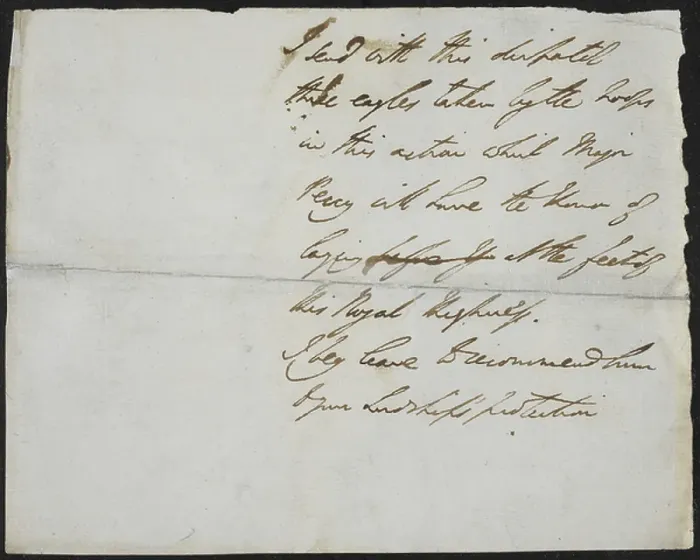 I send with this dispatch
three eagles taken by the troops
in this action which Major
Percy will have the Honor of
laying before you at the feet of
His Royal Highness.
I beg leave to recommend him
to your Lordship's protection